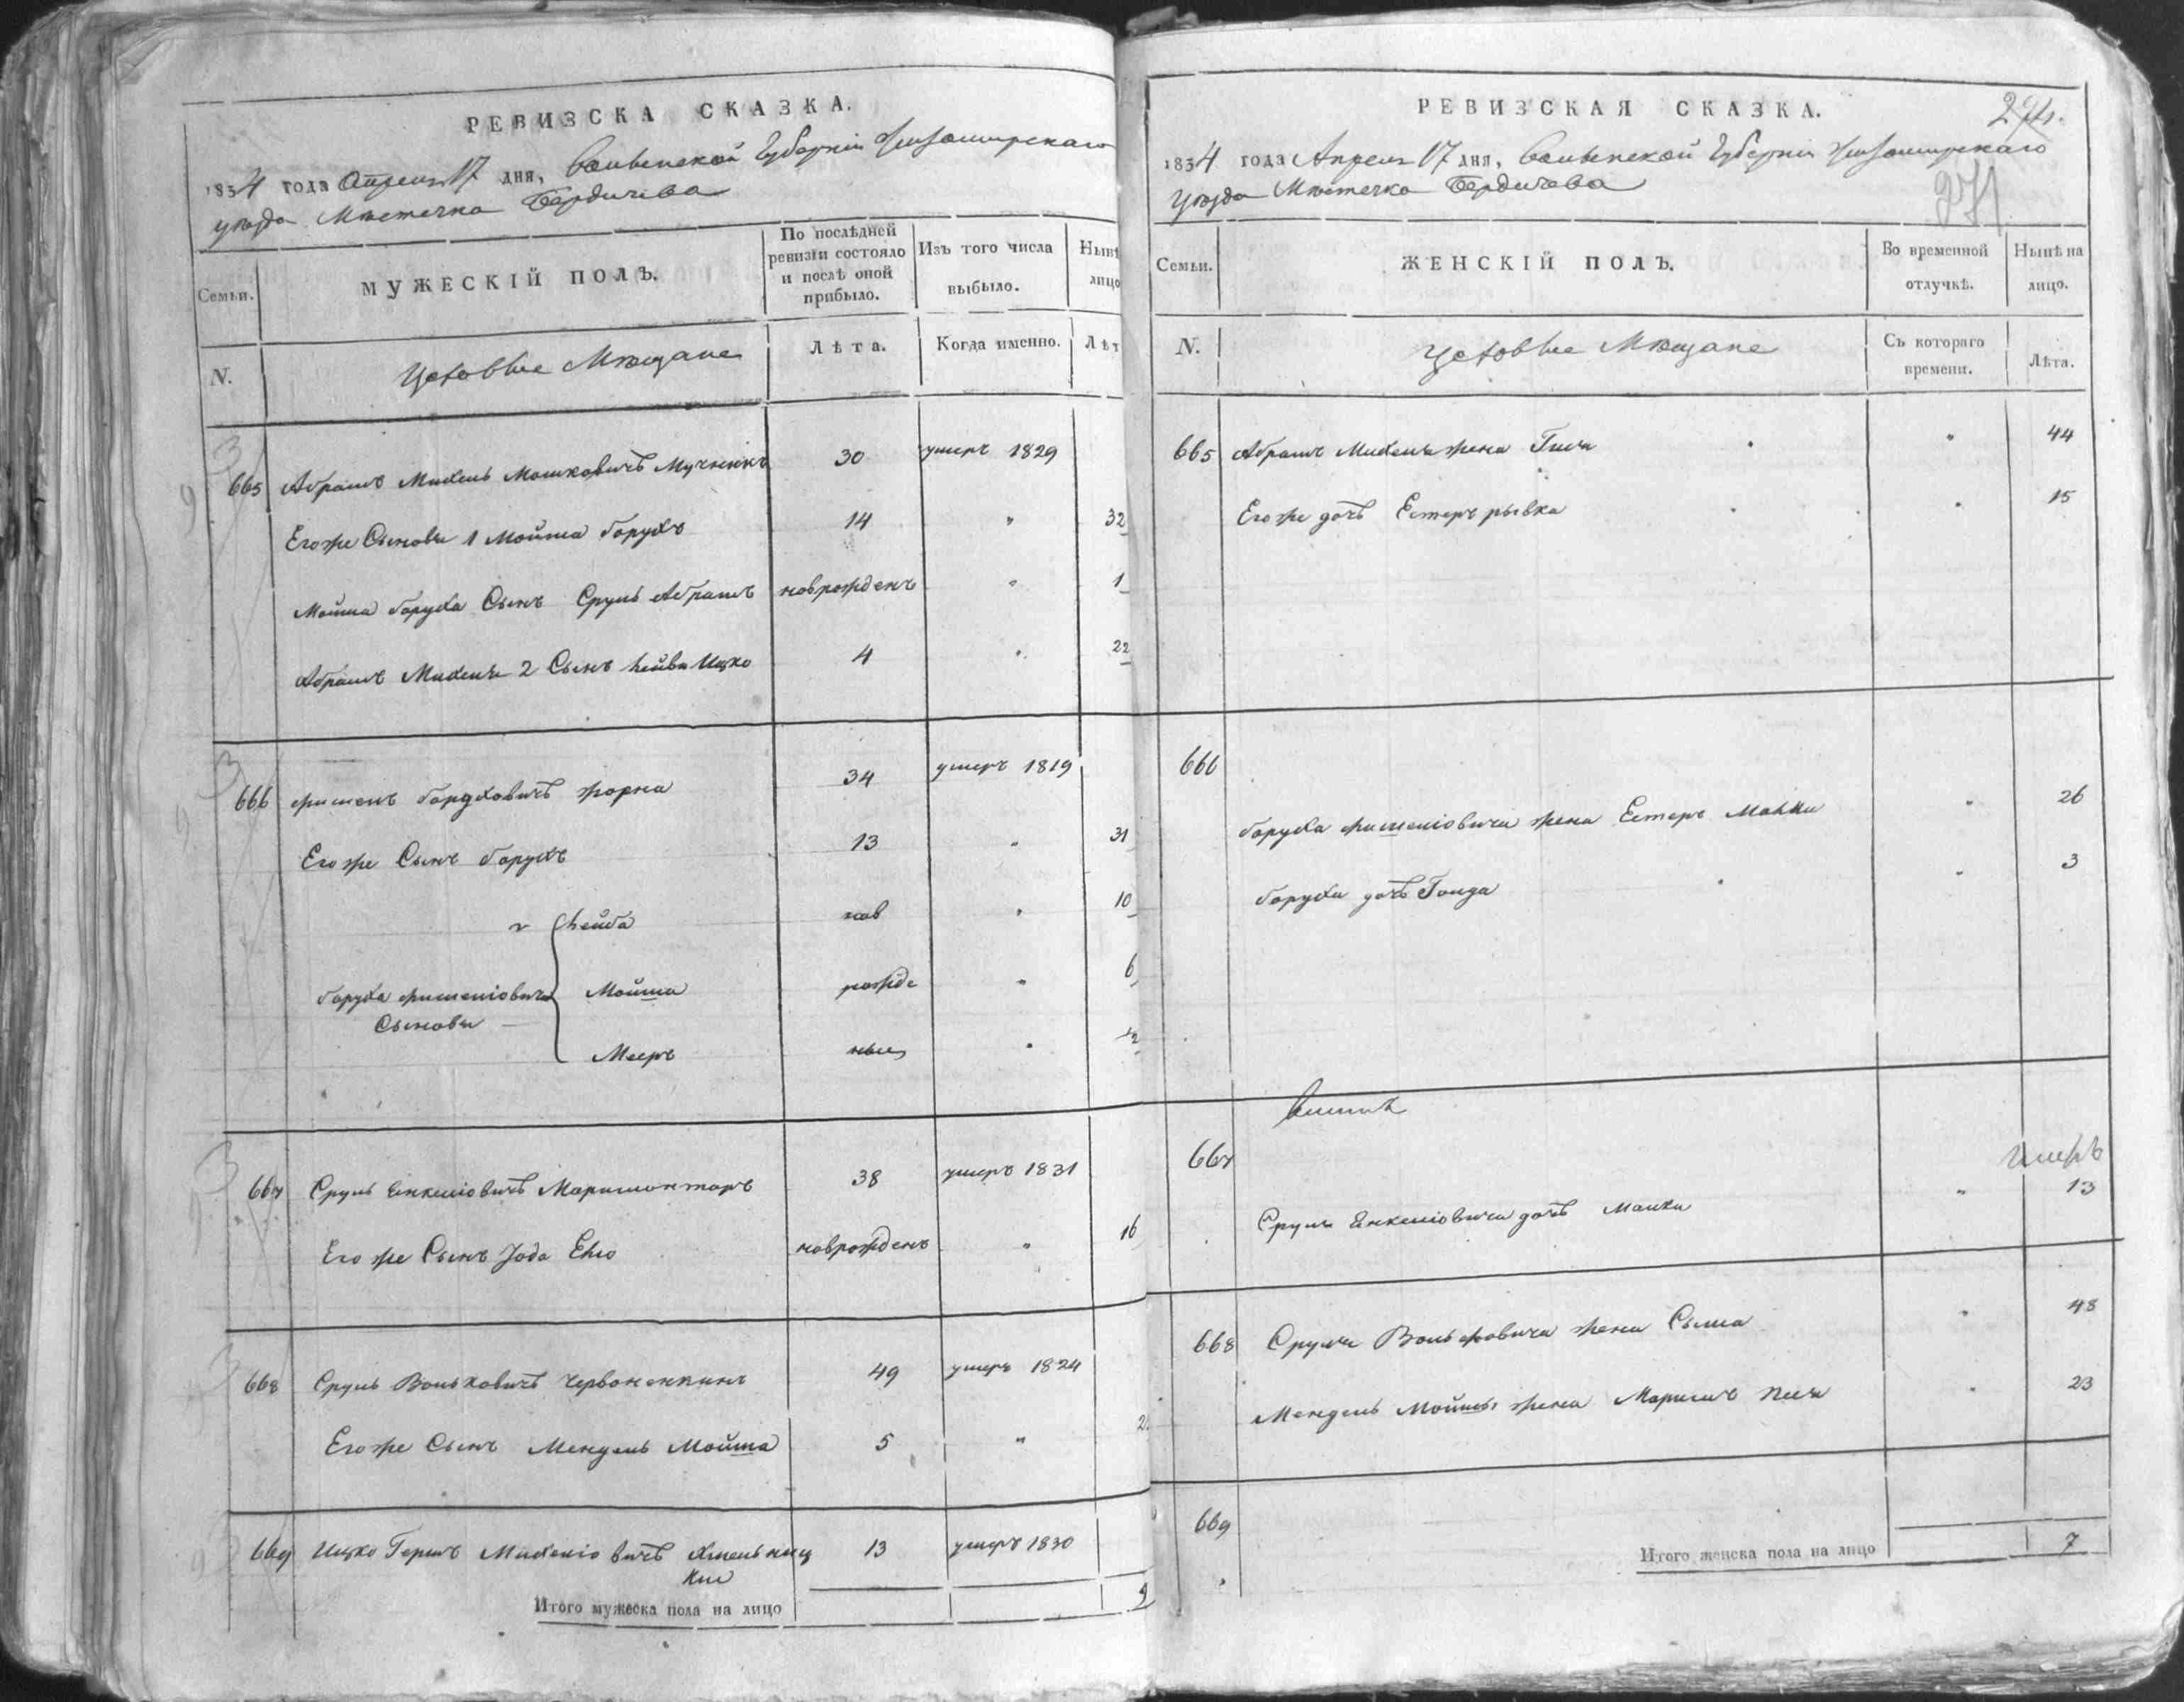 РЕВИЗСКА СКАЗКА.
1834 года Апреля 17 дня, Волынской Губернии Житомирского
уезда Местечка Бердичева
Семьи.
МУЖЕСКІЙ ПОЛЪ.
По послѣдней ревизіи состояло и послѣ оной прибыло.
Изъ того числа выбыло.
Нынѣ лицо
N.
Мѣщане
Лѣта.
Когда именно.
Лѣт
665 Абрамъ Михель Мошковичъ Мучникъ 30 умеръ 1829
Егоже Сыновья 1 Мойша Борухъ 14 " 32
Мойша Боруха Сынъ Сруль Абрамъ новрожденъ " 1
Абрамъ Михеля 2 Сынъ Лейба Ицко 4 " 22
666 Фишель Борухович 34 умеръ 1819
Егоже Сынъ Борухъ 13 " 31
Лейба нов " 10
Боруха Фишелiовича Мойша рожде " 6
Сыновья
Мееръ ные "
667 Сруль Енкелiовичъ 38 умеръ 1831
Егоже Сынъ новрожденъ " 16
668 Сруль Вольковичъ 49 умеръ 1824
Егоже Сынъ Мендель Мойша 5 "
669 Ицко Гершъ Михелiовичъ Хмельниц 13 умеръ 1830
кий
Итого мужеска пола на лицо 9
РЕВИЗСКАЯ СКАЗКА.
271
1834 года Апреля 17 дня, Волынской Губернии Житомирского
уезда Местечка Бердичева
Семьи.
ЖЕНСКІЙ ПОЛЪ.
Во временной отлучкѣ.
Нынѣ на лицо.
N.
Мѣщане
Съ котораго времени.
Лѣта.
665 Абрамъ Михеля жена " 44
Егоже дочь Естеръ рывка " 15
666
Боруха Фишелiовича жена Естеръ " 26
Боруха дочь Голда " 3
667
Сруля Енкелiовича дочь Малка " 13
668 Сруля Вольковича жена Сыма " 48
Мендель Мойшы жена " 23
669
Итого женска пола на лицо 7